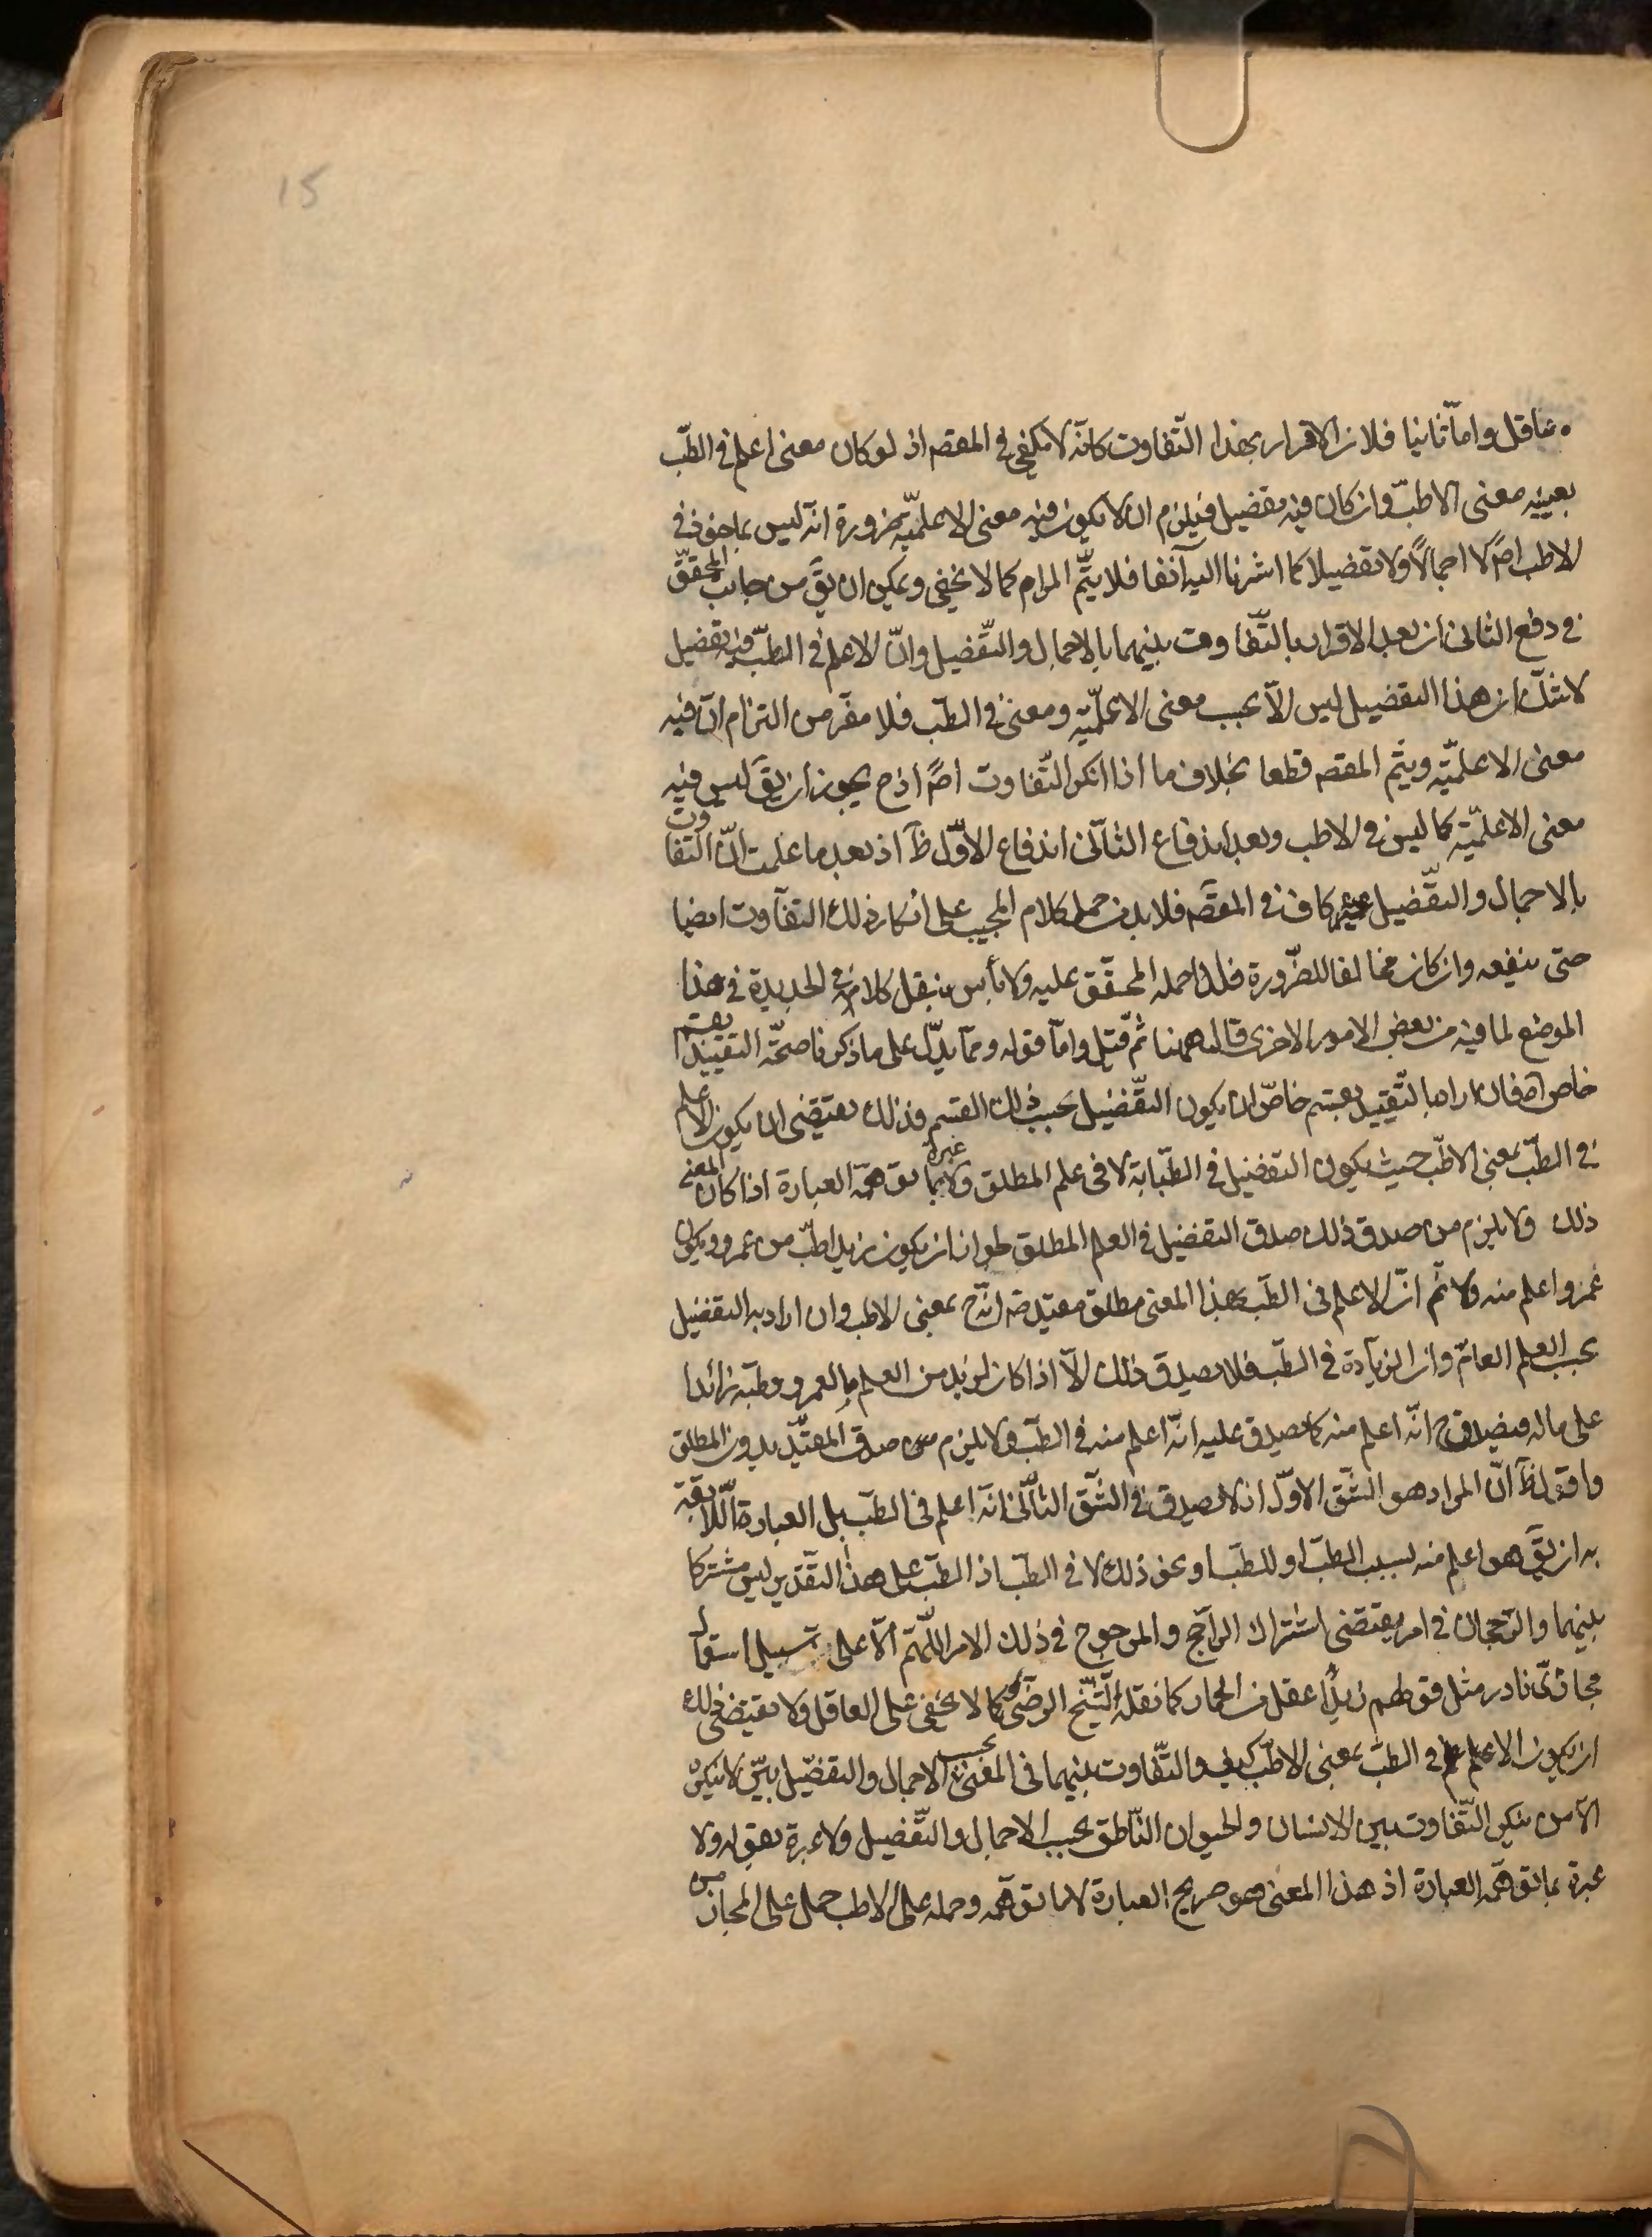 15
مناقل واما ثانيا فلان الاقرار بهذا التفاوت كانه لا يكفى فى المقصـ اذ لو كان معنى اعلم فى الطب
بعينه معنى الاطب وان كان فيه تفضيل فيلزم ان لا يكون فيه معنى الاعلمية ضرورة انه ليس بماخوذ فى
الاطب اصً لا اجمالاً ولا تفضيلا كما اشرنا اليه آنفا فلا يتم المرام كما لا يخفى ويمكن ان يقَ من جانب المحقق
فى دفع الثانى ان بعد الاقرار بالتفاوت بينهما بالاجمال والتفضيل وانّ الاعلم فى الطب فيه تفضيل
لا شك ان هذا التفضيل ليس الّا بحسب معنى الاعلمية ومعنى فى الطب فلا مفر من التزام انّ فيه
معنى الاعلمية ويتم المقصـ قطعا بخلاف ما اذا انكر التفاوت اصً اذ ح يجوز ان يقَ ليس فيه
معنى الاعلمية كما ليس فى الاطب وبعد اندفاع الثانى اندفاع الاول ظَ اذ بعد ما علمت انّ التفاوت
بالاجمال والتفضيل كاف فى المقصـ فلا بد من حمل كلام المجيب على انكار ذلك التفاوت ايضا
حتى ينفعه وان كان مخالفا للضرورة فلذا حمله المحقق عليه ولا بأس بنقل كلامه فى الجديدة فى هذا
الموضع لما فيه من بعض الامور الاخرى قال ههنا ثم قيل واما قوله ومما يدلّ على ما ذكرنا صحة التقييد بقسم
خاص اه فان اراد بالتقييد بقسم خاص ان يكون التفضيل بحسب ذلك القسم فذلك يقتضى ان يكون الاعلم
فى الطب بمعنى الاطب حيث يكون التفضيل فى الطبابة لا فى علم المطلق ولا عبرة بما توهمه العبارة اذا كان المعنى
ذلك ولا يلزم من صدق ذلك صدق التفضيل فى العلم المطلق لجواز ان يكون زيد اطب من عمرو ويكون
عمرو اعلم منه ولا نم انّ الاعلم فى الطب بهذا المعنى مطلق مقيد ضـ انه ح بمعنى الاطب وان اراد به التفضيل
بحسب العلم العام وان الزيادة فى الطب فلا يصدق ذلك الّا اذا كان لزيد من العلم ما لعمرو وطبه زائدا
على ما له فيصدق ح انّه اعلم منه كما يصدق عليه انّه اعلم منه فى الطب ولا يلزم من صدق المقيد بدون المطلق
واقول ظَ انّ المراد هو الشق الاول اذ لا يصدق فى الشق الثانى انّه اعلم فى الطب بل العبارة اللائقة
به ان يقَ هو اعلم منه بسبب الطب او للطب او نحو ذلك لا فى الطب اذ الطب على هذا التقدير ليس مشتركا
بينهما والرجحان فى امر يقتضى اشتراك الراجح والمرجوح فى ذلك الامر اللهم الّا على سبيل استعمال
مجازىّ نادر مثل قولهم زيد اعقل من الحمار كما نقله الشيخ الرضى كما لا يخفى على العاقل ولا يقتضى ذلك
ان يكون الاعلم فى الطب بمعنى الاطب كيف والتفاوت بينهما فى المعنى بحسب الاجمال والتفضيل بيّن لا ينكره
الّا من ينكر التفاوت بين الانسان والحيوان الناطق بحسب الاجمال والتفضيل ولا عبرة بقوله ولا
عبرة بما توهمه العبارة اذ هذا المعنى هو صريح العبارة لا ما توهمه وحمله على الاطب حمل على المجاز من